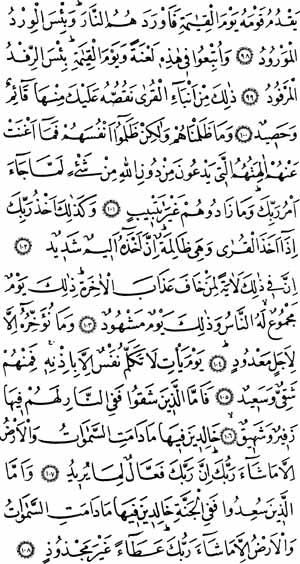 يَقْدُمُ قَوْمَهُ يَوْمَ الْقِيٰمَةِ فَاَوْرَدَ هُمُ النَّارَ ؕ وَ بِئْسَ الْوِرْدُ
الْمَوْرُوْدُ ﴿۹۸﴾ وَ اُتْبِعُوْا فِيْ هٰذِهٖ لَعْنَةً وَّ يَوْمَ الْقِيٰمَةِ ؕ بِئْسَ الرِّفْدُ
الْمَرْفُوْدُ ﴿۹۹﴾ ذٰلِكَ مِنْ اَنْۢبَآءِ الْقُرٰى نَقُصُّهٗ عَلَيْكَ مِنْهَا قَآئِمٌ
وَّ حَصِيْدٌ ﴿۱۰۰﴾ وَ مَا ظَلَمْنٰهُمْ وَ لٰكِنْ ظَلَمُوْۤا اَنْفُسَهُمْ فَمَاۤ اَغْنَتْ
عَنْهُمْ اٰلِهَتُهُمُ الَّتِيْ يَدْعُوْنَ مِنْ دُوْنِ اللّٰهِ مِنْ شَيْءٍ لَّمَّا جَآءَ
اَمْرُ رَبِّكَ ؕ وَ مَا زَادُوْهُمْ غَيْرَ تَتْبِيْبٍ ﴿۱۰۱﴾ وَ كَذٰلِكَ اَخْذُ رَبِّكَ
اِذَاۤ اَخَذَ الْقُرٰى وَ هِيَ ظَالِمَةٌ ؕ اِنَّ اَخْذَهٗۤ اَلِيْمٌ شَدِيْدٌ ﴿۱۰۲﴾
اِنَّ فِيْ ذٰلِكَ لَاٰيَةً لِّمَنْ خَافَ عَذَابَ الْاٰخِرَةِ ؕ ذٰلِكَ يَوْمٌ
مَّجْمُوْعٌ ۙ لَّهُ النَّاسُ وَ ذٰلِكَ يَوْمٌ مَّشْهُوْدٌ ﴿۱۰۳﴾ وَ مَا نُؤَخِّرُهٗۤ اِلَّا
لِاَجَلٍ مَّعْدُوْدٍ ﴿۱۰۴﴾ يَوْمَ يَاْتِ لَا تَكَلَّمُ نَفْسٌ اِلَّا بِاِذْنِهٖ ۚ فَمِنْهُمْ
شَقِيٌّ وَّ سَعِيْدٌ ﴿۱۰۵﴾ فَاَمَّا الَّذِيْنَ شَقُوْا فَفِي النَّارِ لَهُمْ فِيْهَا
زَفِيْرٌ وَّ شَهِيْقٌ ﴿۱۰۶﴾ خٰلِدِيْنَ فِيْهَا مَا دَامَتِ السَّمٰوٰتُ وَ الْاَرْضُ
اِلَّا مَا شَآءَ رَبُّكَ ؕ اِنَّ رَبَّكَ فَعَّالٌ لِّمَا يُرِيْدُ ﴿۱۰۷﴾ وَ اَمَّا
الَّذِيْنَ سُعِدُوْا فَفِي الْجَنَّةِ خٰلِدِيْنَ فِيْهَا مَا دَامَتِ السَّمٰوٰتُ
وَ الْاَرْضُ اِلَّا مَا شَآءَ رَبُّكَ ؕ عَطَآءً غَيْرَ مَجْذُوْذٍ ﴿۱۰۸﴾